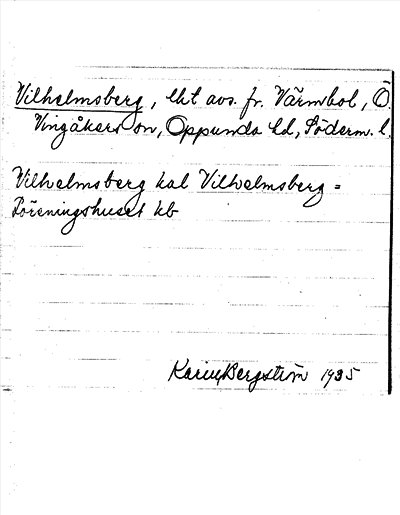 Vilhelmsberg, lht avs. fr. Värmbol, Ö.
Vingåkers sn, Oppunda hd, Söderm. l.
Vilhelmsberg kal Vilhelmsberg =
Föreningshuset kb
Karin Bergström 1935